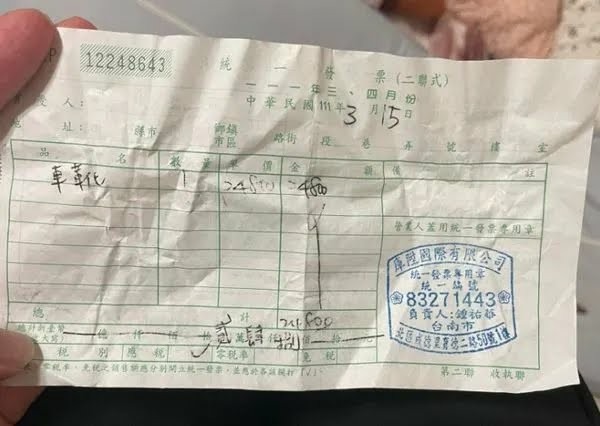 12248643
統一發票(二聯式)
一一一年三、四月份
中華民國111年3月15日
買受人:
地址: 縣市 鄉鎮市區 路街 段 巷 弄 號 樓 室
品名 數量 單價 金額 備註
1 24800 24800
營業人蓋用統一發票專用章
國際有限公司
統一發票專用章
統一編號
83271443
負責人:鍾祐
台南市
總計 24,800
總計新臺幣
億 仟 佰 拾 貳萬 肆仟 捌佰 拾
稅別 應稅 零稅率 免稅
第二聯 收執聯